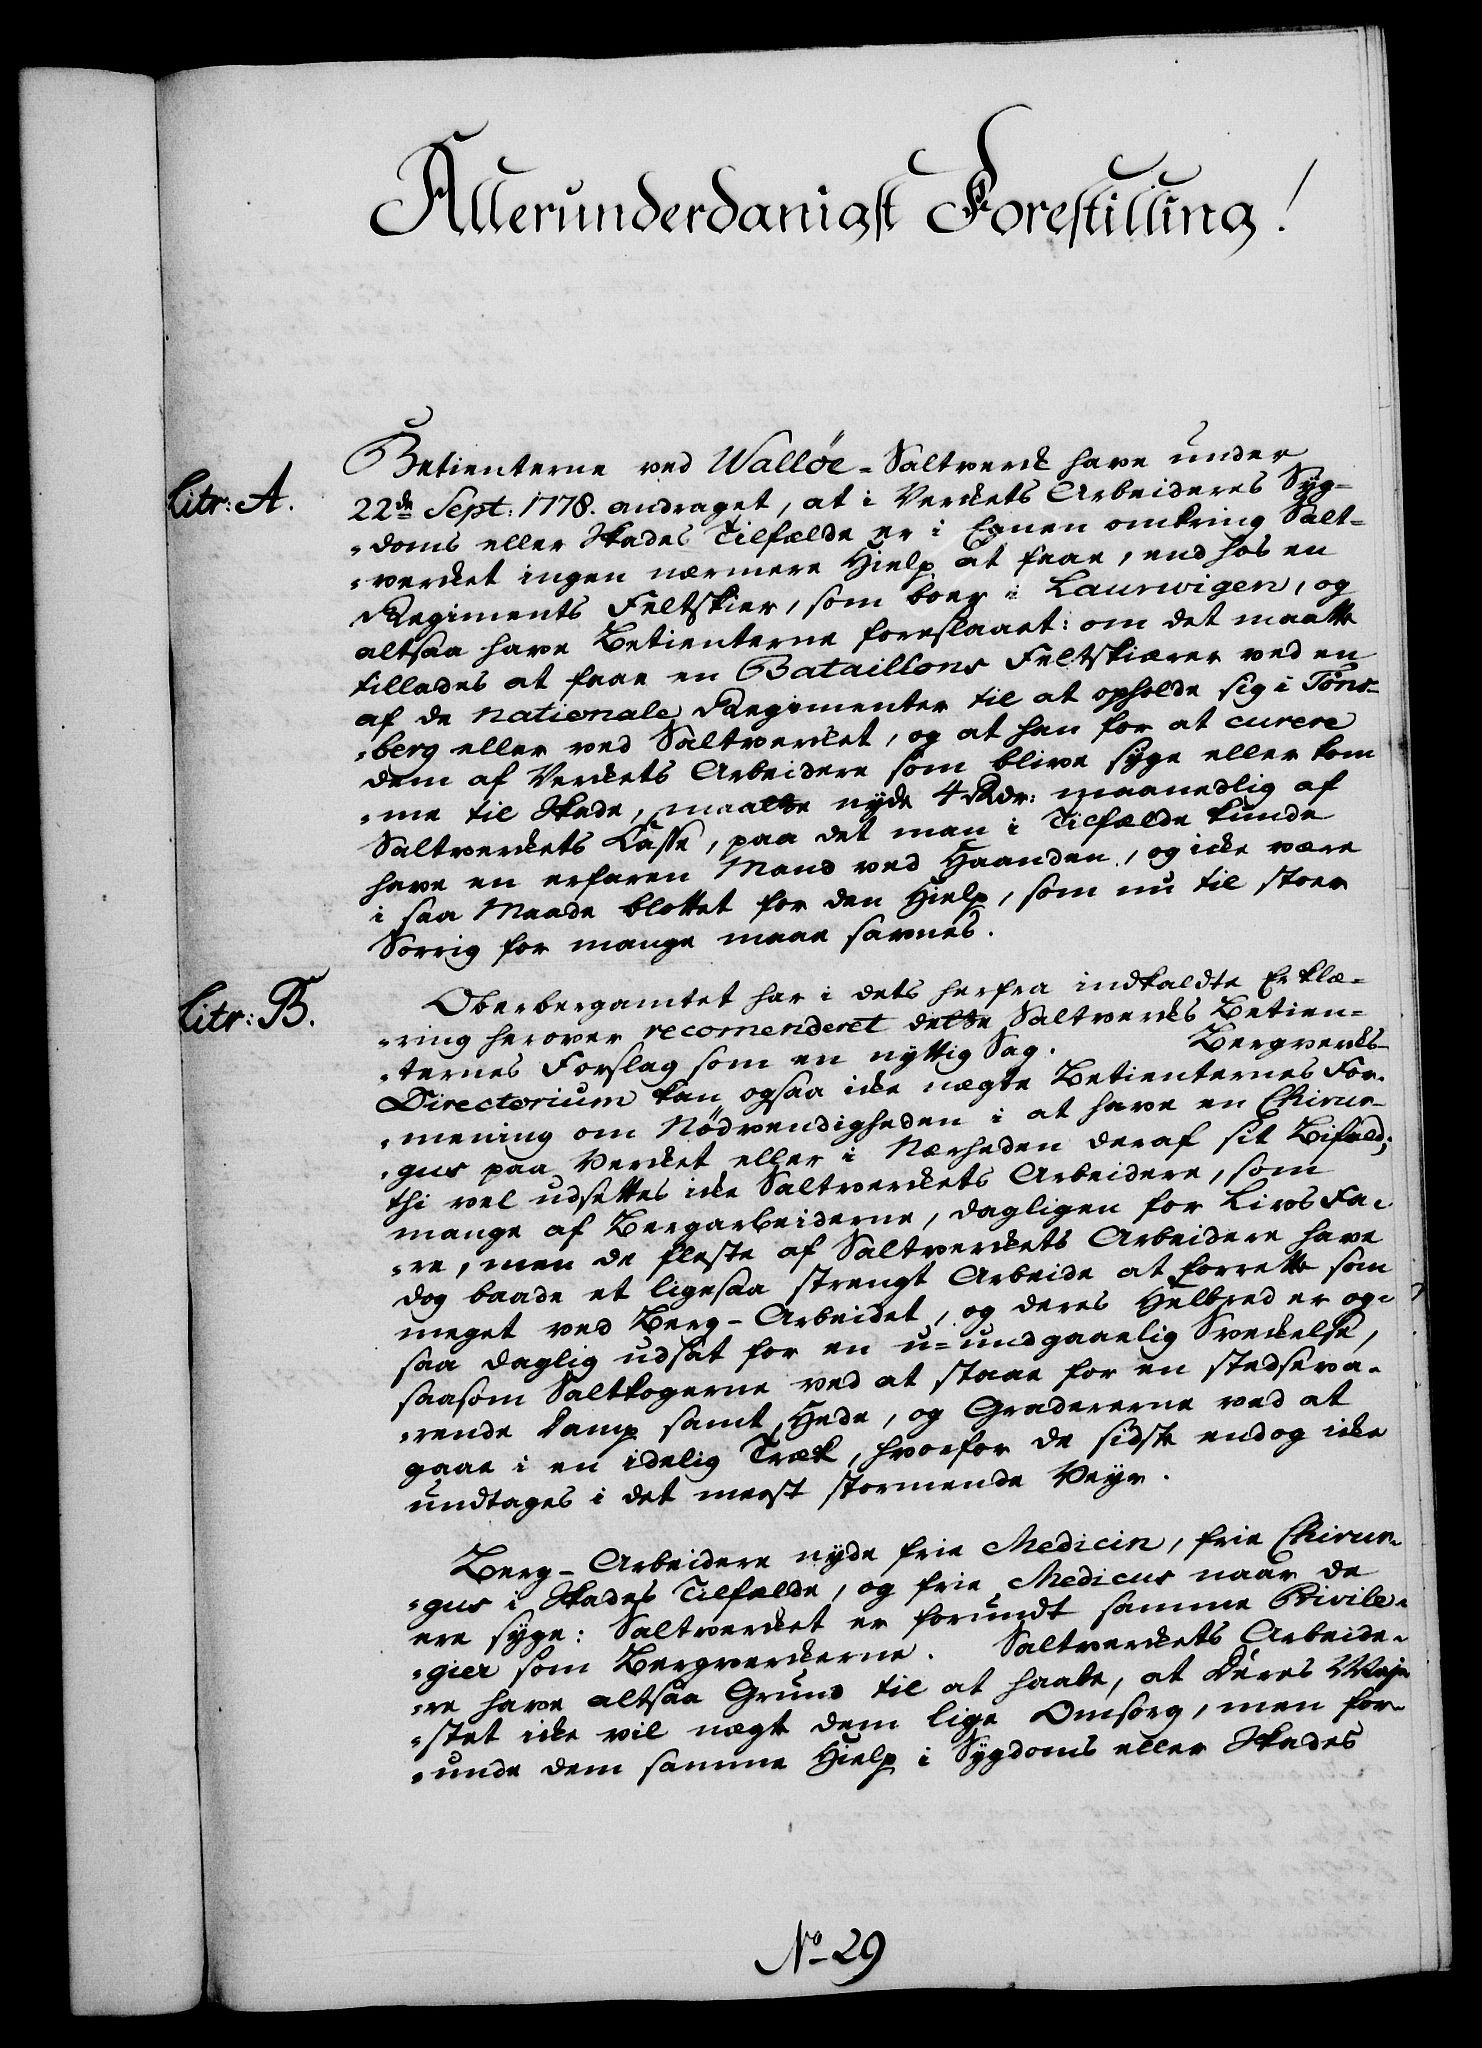 Allerunderdanigst Forestilling!
Litr: A.
Betienterne ved Walløe-Saltverk have under
22de Sept: 1778. andraget, at i Verkets Arbeideres Syg-
-doms eller Skades Tilfælde er i Egnen omkring Salt-
-verket ingen nærmere Hielp at faae, end hos en
Regiments Feltskier, som boer i Laurwigen, og
altsaa have Betienterne foreslaaet: om det maatte
tillades at faae en Bataillons Feltskiærer ved en
af de nationale Regimenter til at opholde sig i Töns-
-berg eller ved Saltverket, og at han for at curere
dem af Verkets Arbeidere som blive syge eller kom
-me til Skade, maatte nyde 4 Rdr: maanedlig af
Saltverkets Casse, paa det man i Tilfælde kunde
have en erfaren Mand ved Haanden, og ikke være
i saa Maade blottet for den Hielp, som nu til stoer
Sorrig for mange maae savnes.
Litr: B.
Oberbergamtet har i dets herfra indkaldte Erklæ-
-ring herover recomenderet dette Saltverks Betien-
-ternes Forslag som en nyttig Sag. Bergverks-
Directorium kan ogsaa ikke nægte Betienternes For-
-mening om Nödvendigheden i at have en Chirur-
-gus paa Verket eller i Nærheden deraf sit Bifald;
thi vel udsettes ikke Saltverkets Arbeidere, som
mange af Bergarbeiderne, dagligen for Livs Fa-
-re, men de fleste af Saltverkets Arbeidere have
dog baade et ligesaa strengt Arbeide at forrette som
meget ved Berg-Arbeidet, og deres Helbred er og-
saa daglig udsat for en u-undgaaelig Svekelse,
saasom Saltkogerne ved at staae for en stedseva-
-rende Damp samt Hede, og Gradererne ved at
gaae i en idelig Træk, hvorfor de sidste endog ikke
undtages i det meest stormende Veyr.
Berg-Arbeidere nyde frie Medicin, frie Chirur-
-gus i Skades Tilfælde, og frie Medicus naar de
ere syge: Saltverket er forundt samme Privile-
-gier som Bergverkerne. Saltverkets Arbeide-
-re have altsaa Grund til at haabe, at Deres Maje
-stet ikke vil nægte dem lige Omsorg, men for-
-unde dem samme Hielp i Sygdoms eller Skades
No 29